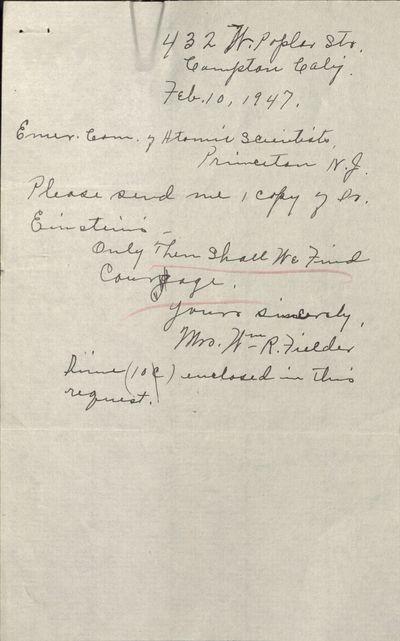 432 W. Poplar Str.
Compton Calif.
Feb. 10, 1947.
Emer. Com. of Atomic Scientists,
Princeton N.J.
Please send me 1 copy of Dr.
Einstein's —
Only Then Shall We Find
Courage.
Yours sincerely,
Mrs. Wm R. Fielder
Dime (10¢) enclosed in this
request.